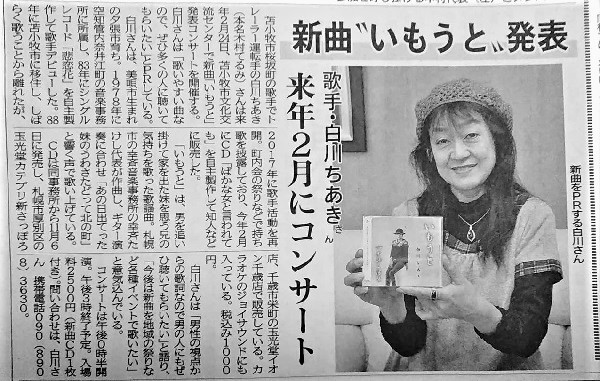 新曲“いもうと”発表
来年2月にコンサート
歌手・白川ちあきさん
新曲をPRする白川さん
いもうと
苫小牧市桜坂町の歌手でト
レーラー運転手の白川ちあき
(本名木村てるみ)さんは来
年2月24日、苫小牧市文化交
流センターで新曲「いもうと」
発表コンサートを開催する。
白川さんは「歌いやすい曲な
ので、ぜひ多くの人に聴いて
もらいたい」とPRしている。
白川さんは、美唄市生まれ
の夕張市育ち。1978年に
空知管内奈井江町の音楽事務
所に所属し、83年にシングル
レコード「悲恋花」を自主製
作して歌手デビューした。88
年に苫小牧市に移住し、しば
らく歌うことから離れたが、
2017年に歌手活動を再
開。町内会の祭りなどで持ち
歌を披露しており、今年2月
にCD「ばかな女と言われて
も」を自主製作して知人など
に販売した。
「いもうと」は、男を追い
掛けて家を出た妹を思う兄の
気持ちを歌った歌謡曲。札幌
市の幸斉音楽事務所の幸斉た
けし代表が作曲し、ギター演
奏に合わせ「あの日出てった
妹の うわさたどって北の町」
と響く声で歌い上げている。
CDは同事務所から11月6
日に発売し、札幌市厚別区の
玉光堂カテプリ新さっぽろ
店、千歳市栄町の玉光堂イオ
ン千歳店で販売している。カ
ラオケのジョイサウンドにも
入っている。税込み1000
円。
白川さんは「男性の視点か
らの歌詞なので男の人にもぜ
ひ聴いてもらいたい」と語り、
「今後は新曲を地域の祭りな
ど各種イベントで歌いたい」
と意気込んでいる。
コンサートは午後0時半開
演。午後3時終了予定。入場
料2500円(新曲CD1枚
付き)。問い合わせは、白川さ
ん 携帯電話090(890
8)3630。